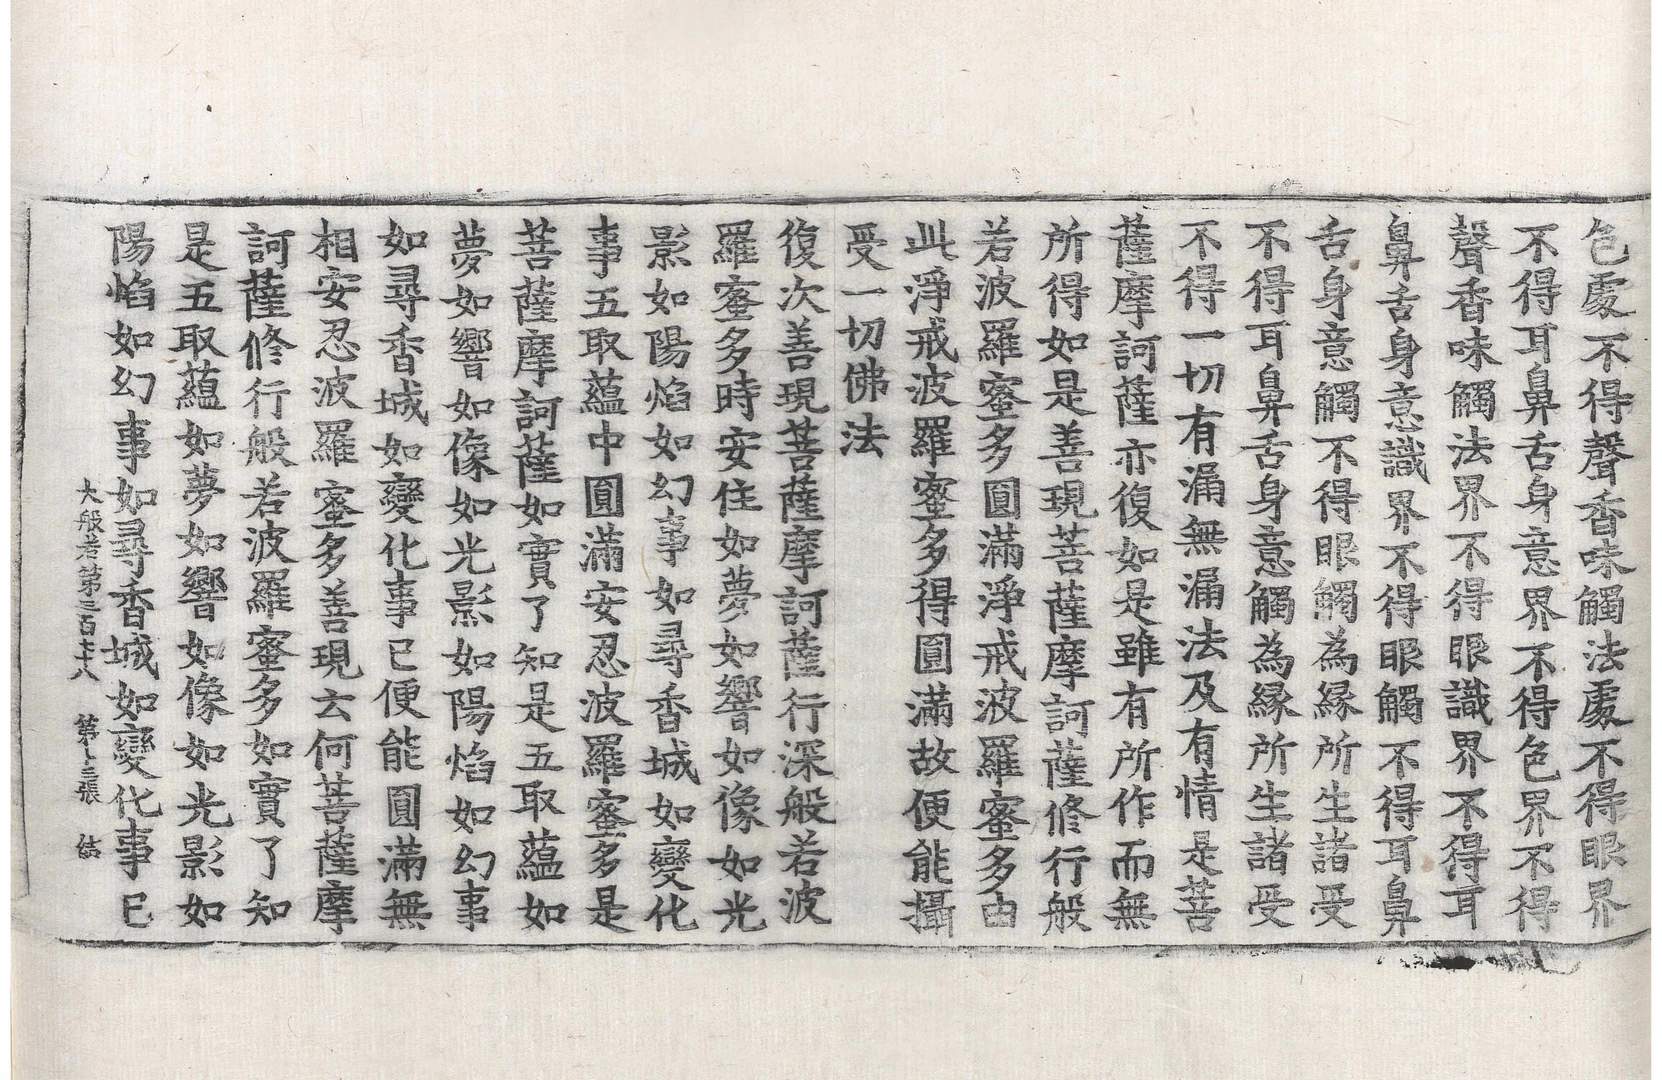 色處不得聲香味觸法處不得眼界
不得耳鼻舌身意界不得色界不得
聲香味觸法界不得眼識界不得耳
鼻舌身意識界不得眼觸不得耳鼻
舌身意觸不得眼觸為緣所生諸受
不得耳鼻舌身意觸為緣所生諸受
不得一切有漏無漏法及有情是菩
薩摩訶薩亦復如是雖有所作而無
所得如是善現菩薩摩訶薩修行般
若波羅蜜多圓滿淨戒波羅蜜多由
此淨戒波羅蜜多得圓滿故便能攝
受一切佛法
復次善現菩薩摩訶薩行深般若波
羅蜜多時安住如夢如響如像如光
影如陽焰如幻事如尋香城如變化
事五取蘊中圓滿安忍波羅蜜多是
菩薩摩訶薩如實了知是五取蘊如
夢如響如像如光影如陽焰如幻事
如尋香城如變化事已便能圓滿無
相安忍波羅蜜多善現云何菩薩摩
訶薩修行般若波羅蜜多如實了知
是五取蘊如夢如響如像如光影如
陽焰如幻事如尋香城如變化事已
大般若第三百七十八 第十三張 結